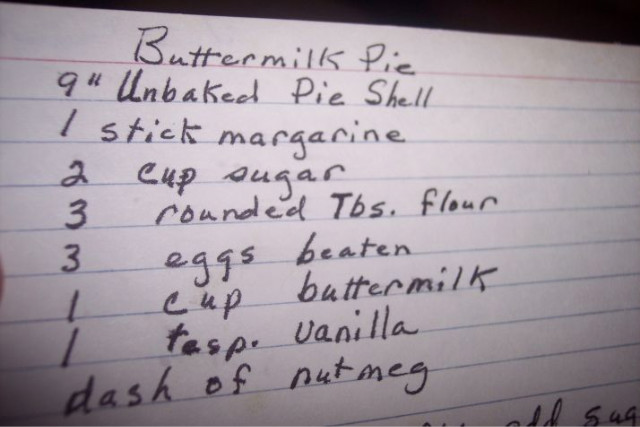 Buttermilk Pie
9" Unbaked Pie Shell
1 stick margarine
2 cup sugar
3 rounded Tbs. flour
3 eggs beaten
1 cup buttermilk
1 tesp. vanilla
dash of nutmeg
add sug